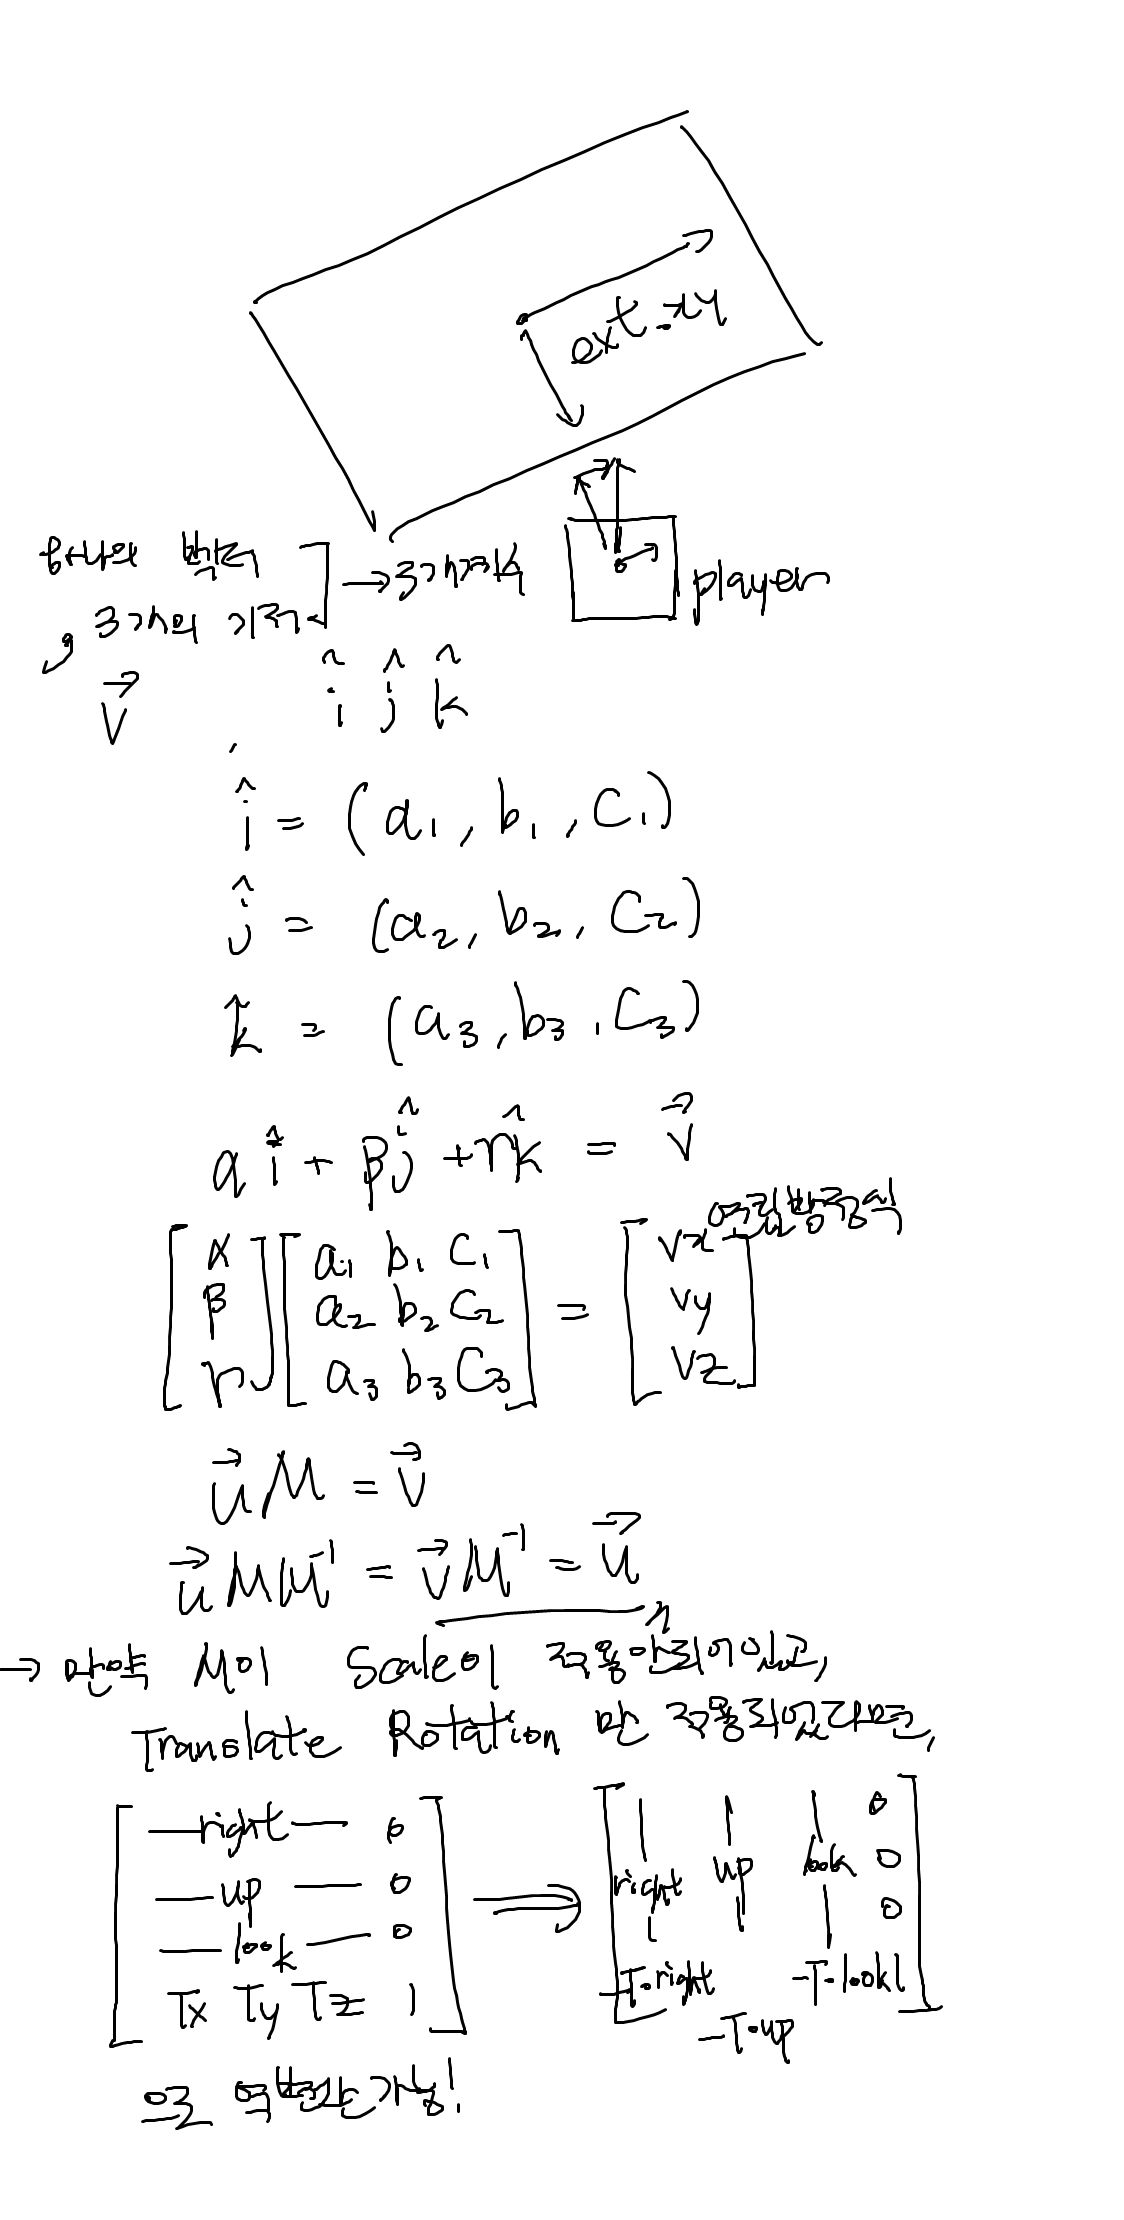 ext.xy
하나의 벡터
→ 3가지축
player
3개의 기저
v⃗
î ĵ k̂
î = (a₁, b₁, c₁)
ĵ = (a₂, b₂, c₂)
k̂ = (a₃, b₃, c₃)
αî + βĵ + rk̂ = v⃗
연립방정식
[α [a₁ b₁ c₁ = [vx
β a₂ b₂ c₂ vy
r] a₃ b₃ c₃] vz]
u⃗M = v⃗
u⃗MM⁻¹ = v⃗M⁻¹ = u⃗
→ 만약 M이 Scale이 적용안되어있고,
Translate Rotation 만 적용되있다면,
[—right— 0
—up— 0
—look— 0
Tx Ty Tz 1]
⇒
[right up look 0
0
0
-T·right -T·up -T·look 1]
으로 역변환 가능!